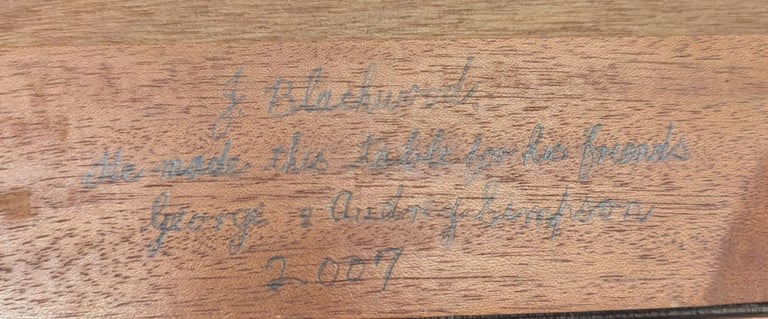 J. Blackwood
He made this table for his friends
George & Audrey Simpson
2007